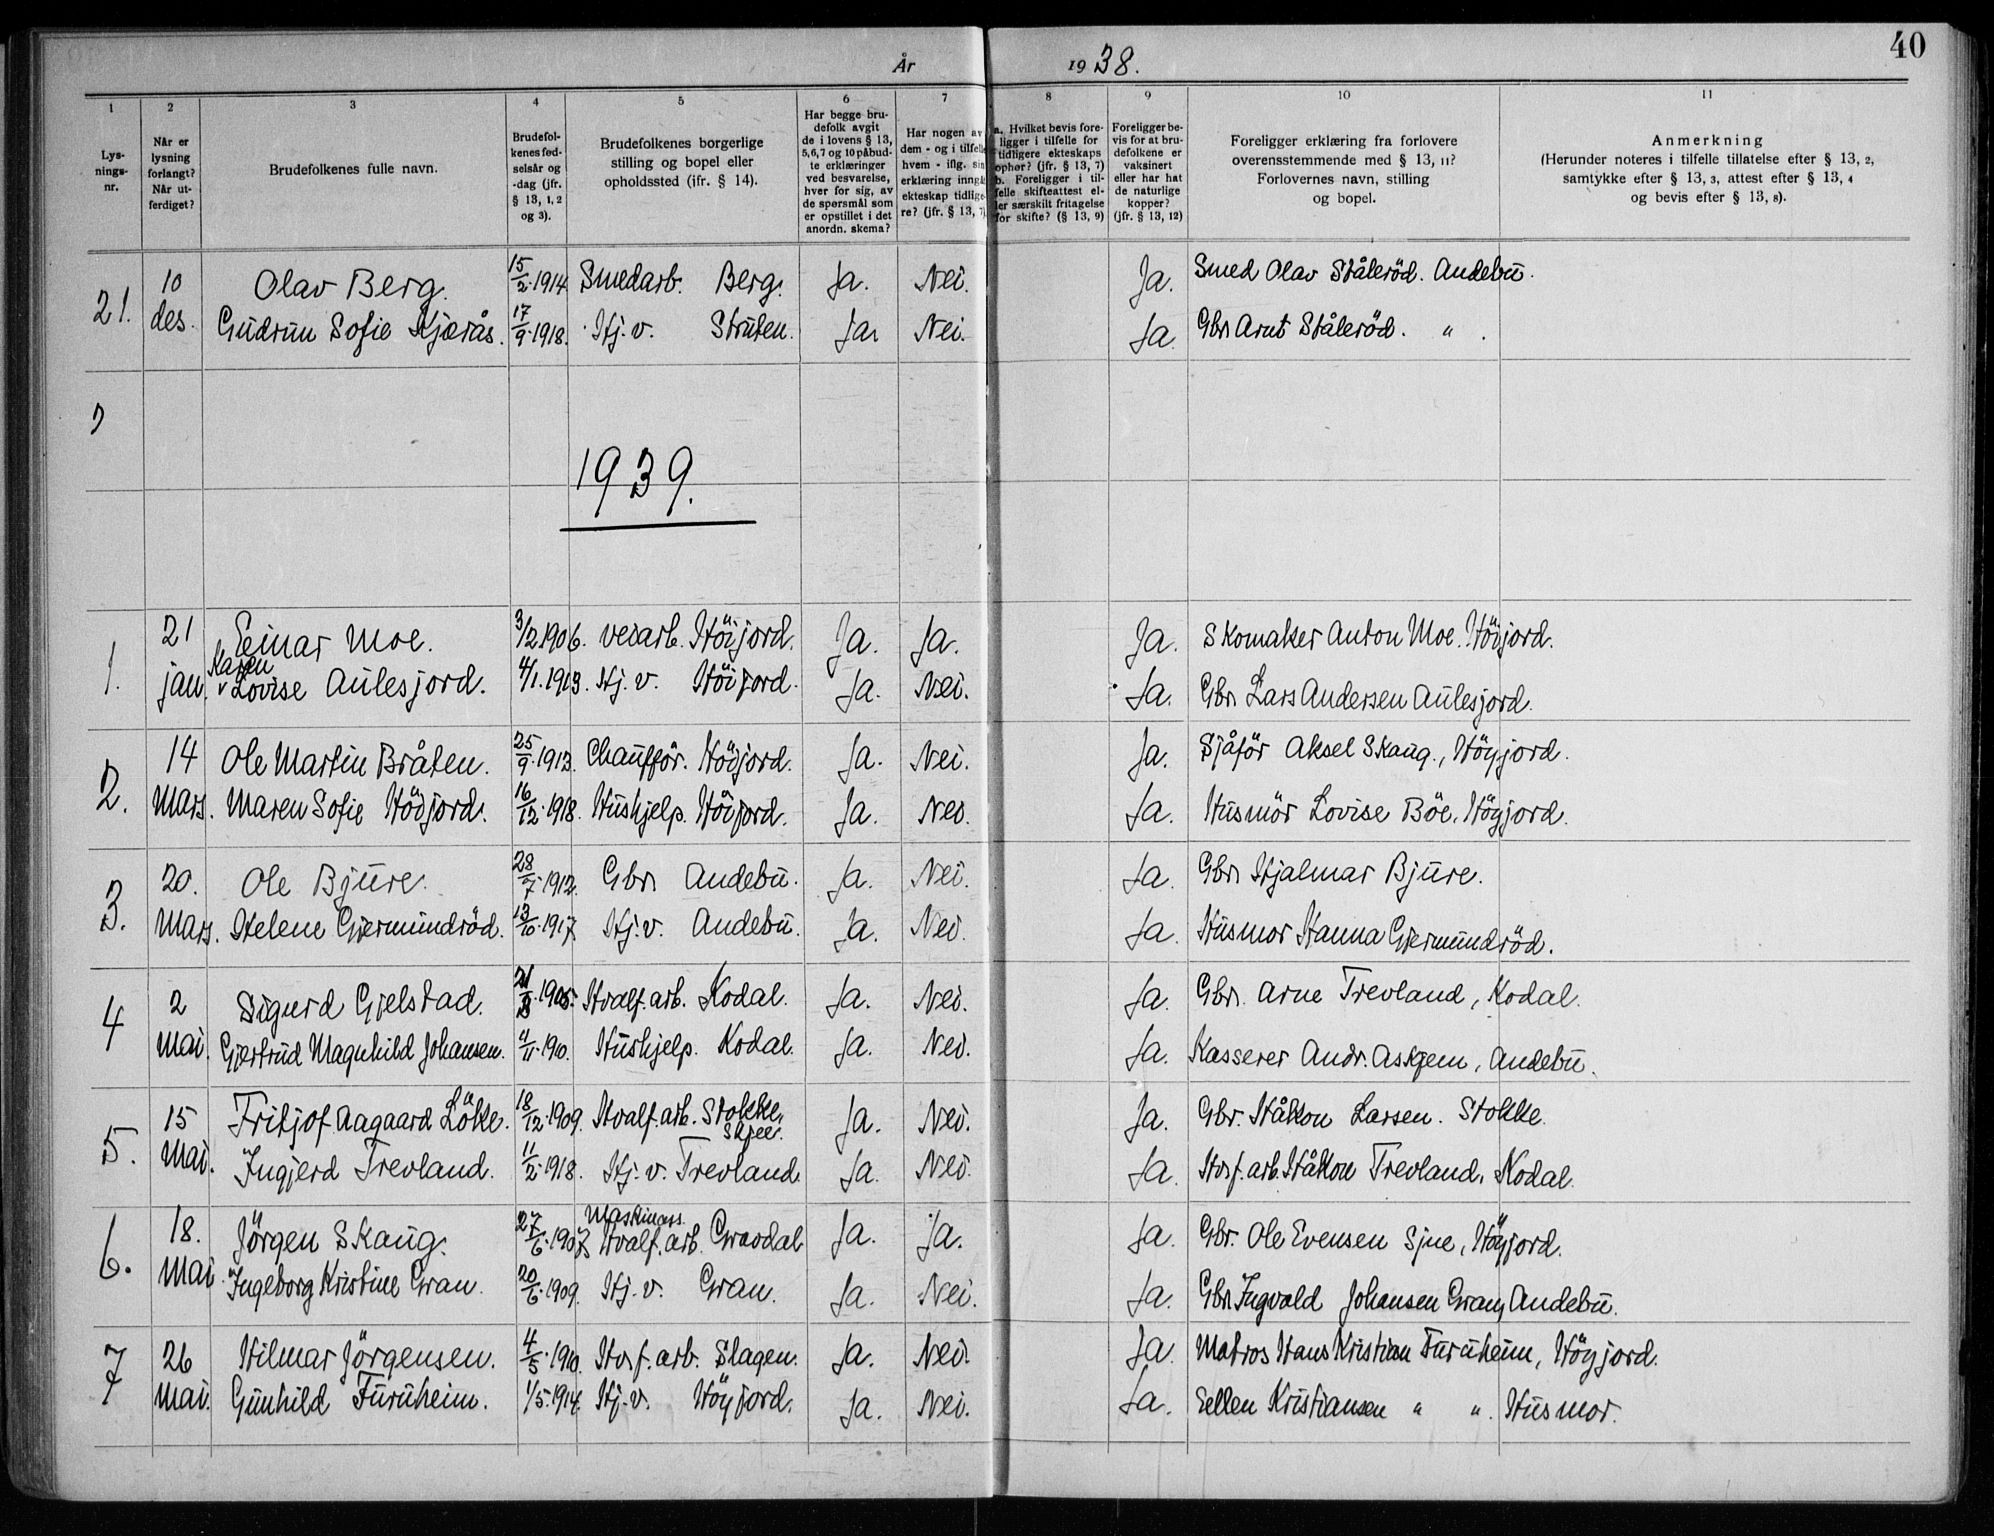 40
År 1938.
1 2 3 4 5 6 7 8 9 10 11
Lys-
nings-
nr.
Når er
lysning
forlangt?
Når ut-
ferdiget?
Brudefolkenes fulle navn.
Brudefol-
kenes fød-
selsår og
-dag (jfr.
§ 13, 1, 2
og 3).
Brudefolkenes borgerlige
stilling og bopel eller
opholdssted (ifr. § 14).
Har begge bru-
defolk avgit
de i lovens § 13,
5, 6, 7 og 10 påbud-
te erklæringer
ved besvarelse,
hver for sig, av
de spørsmål som
er opstillet i det
anordn. skema?
Har nogen av
dem - og i tilfelle
hvem - iflg. sin
erklæring inngå
ekteskap tidlige-
re? (jfr. § 13, 7)
a. Hvilket bevis fore-
ligger i tilfelle for
tidligere ekteskaps
ophør? (jfr. § 13, 7)
b. Foreligger i til-
felle skifteattest el-
ler særskilt fritagelse
for skifte? (§ 13, 9)
Foreligger be-
vis for at bru-
defolkene er
vaksinert
eller har hat
de naturlige
kopper?
(jfr. § 13, 12)
Foreligger erklæring fra forlovere
overensstemmende med § 13, 11?
Forlovernes navn, stilling
og bopel.
Anmerkning
(Herunder noteres i tilfelle tillatelse efter § 13, 2,
samtykke efter § 13, 3, attest efter § 13, 4
og bevis efter § 13, 8).
21. 10 Olav Berg. 15/2 1914 Smedarb. Berg. Ja. Nei. Ja. Smed Olav Stålerød. Andebu.
des. Gudrun Sofie Kjærås. 17/9 1918. Hj. v. Struten. Ja. Nei. Ja. Gbr. Arnt Stålerød. " .
1939.
1. 21 Einar Moe. 3/2 1906. veiarb. Höijord. Ja. Ja. Ja. Skomaker Anton Moe. Höijord.
jan. Karen Lovise Aulesjord. 4/1. 1913. Hj. v. Höijord. Ja. Nei. Ja. Gbr. Lars Andersen Aulesjord.
2. 14 Ole Martin Bråten. 25/9 1913. Chauffør. Höijord. Ja. Nei. Ja. Sjåför Aksel Skaug., Höyjord.
Mars. Maren Sofie Höijord. 16/12 1918. Hushjelp. Höijord. Ja. Nei. Ja. Husmör Lovise Böe, Höyjord.
3. 20. Ole Bjure. 1912. Gbr. Andebu. Ja. Nei. Ja. Gbr. Hjalmar Bjure.
Mars. Helene Gjermundröd. 13/10 1917. Hj. v. Andebu. Ja. Nei. Ja. Husmor Hanna Gjermundröd.
4 2 Sigurd Gjelstad. 1905. Hvalf. arb. Kodal. Ja. Nei. Ja. Gbr. Arne Trevland, Kodal.
Mai. Gjertrud Magnhild Johansen. 1910. Hushjelp. Kodal. Ja. Nei. Ja. Kasserer Andr. Askjem, Andebu.
5. 15 Fritjof Aagaard Lökke. 18/12 1909. Hvalf. arb. Stokke, Skjee. Ja. Nei. Ja. Gbr. Håkon Larsen. Stokke.
Mai. Ingjerd Trevland. 11/2 1918. Hj. v. Trevland. Ja. Nei. Ja. Hv. f. arb. Håkon Trevland, Kodal.
6. 18. Jörgen Skaug. 27/6 1907 Maskinass. Hvalf. arb. Gravdal Ja. Ja. Ja. Gbr. Ole Evensen Sjue, Höyjord.
Mai Ingeborg Kristine Gran. 20/6 1909. Hj. v. Gran. Ja. Nei. Ja. Gbr. Ingvald Johansen Gran, Andebu.
7 26 Hilmar Jörgensen. 4/5 1910. Hv. f. arb. Slagen. Ja. Nei. Ja. Matros Hans Kristian Furuheim, Höyjord.
Mai. Gunhild Furuheim. 1/5. 1914. Hj. v. Höyjord. Ja. Nei. Ja. Ellen Kristiansen " " . Husmor.